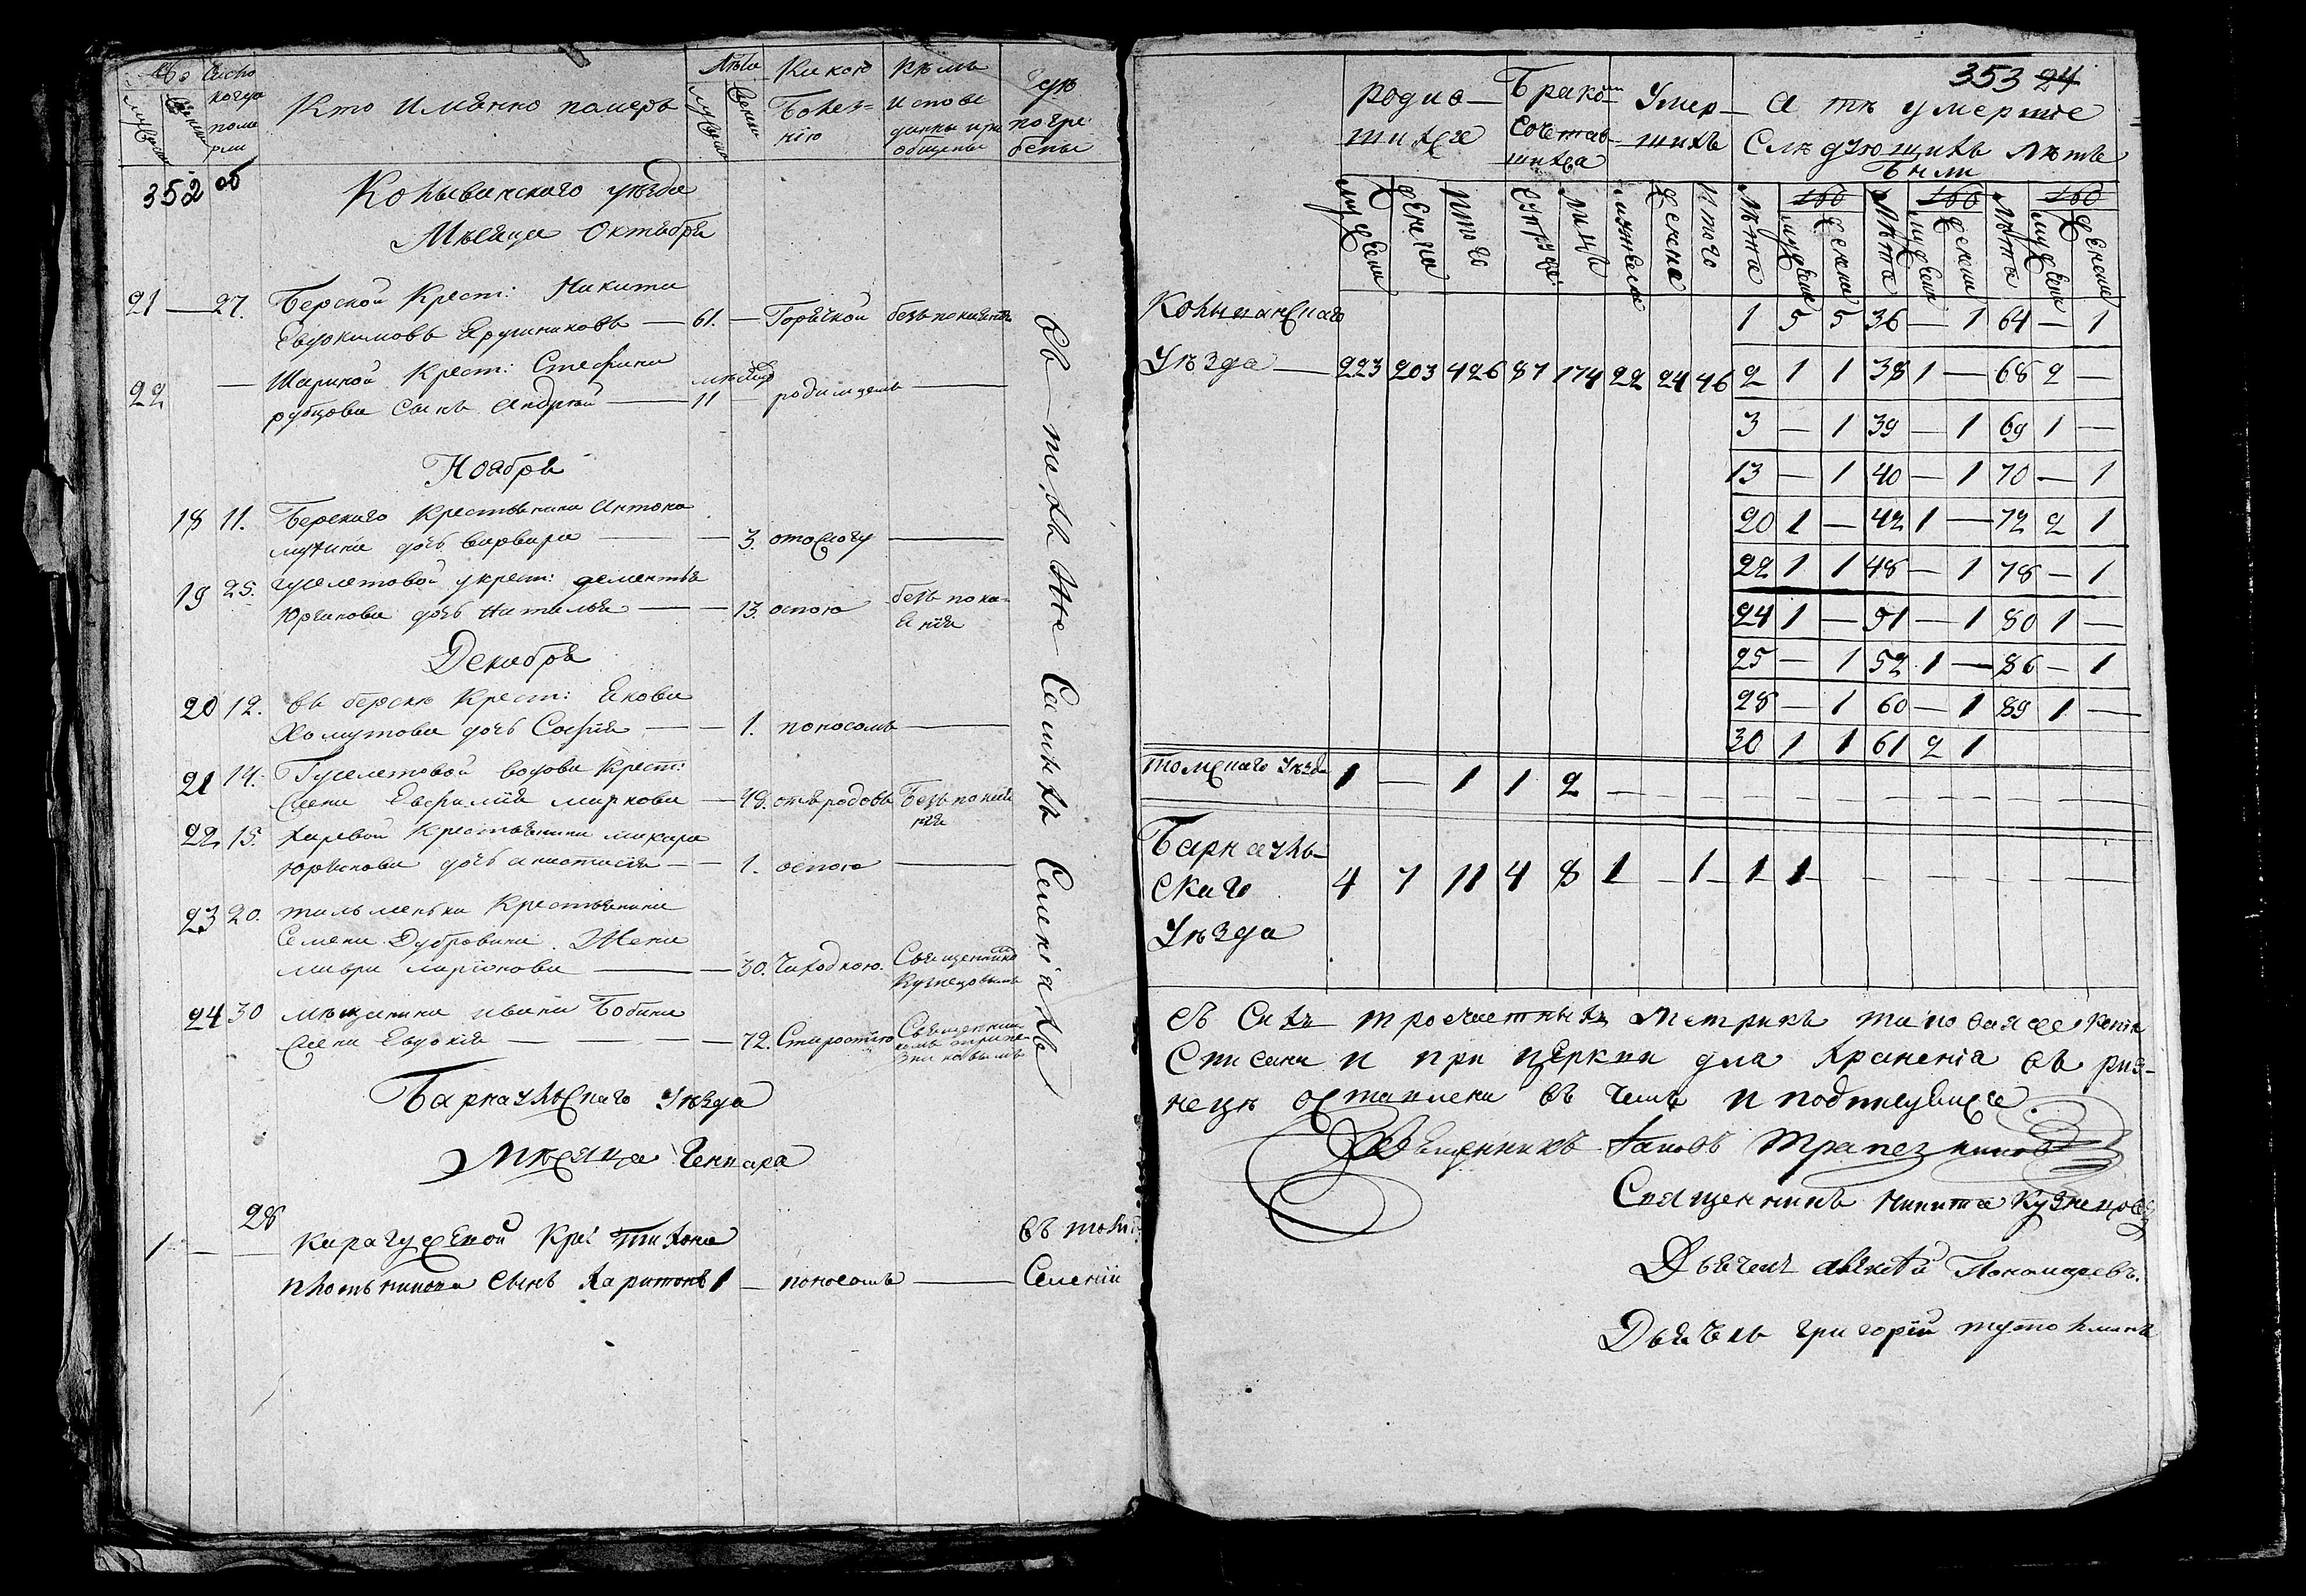 №
Число
когда
поме
рли
Кто имянно померъ
Лѣта
Какою
Болез-
нію
Кѣмъ
исповѣ
даны и при
общены
Гдѣ
погре
бены
352 об
Колыванскаго уѣзда
Мѣсяца Октября
21 — 27. Берской Крест: Никита
Евдокимовъ — 61. — Горячкой безъ покаянія
22 — Крест: Стефана
рубцова сынъ Андрей — 11 родимцемъ —
мѣсяцъ
Ноября
18 11. Берскаго Крестьянина Антона
дочь Варвара — 3. —
19 25. Гуселетовой крест: Дементья
Юрганова дочь Наталья — 13. оспою
безъ пока-
янія
Декабря
20 12. въ берскѣ Крест: Якова
Хомутова дочь Софія — 1. поносомъ —
21 14. Гуселетовой вдова Крест:
Евфимія маркова — 49. отъ родовъ Безъ покая
нія
22 15. Крестьянина макара
дочь анастасія — 1. оспою —
23 20. тальменки Крестьянина
Семена Дубровина Жена
мавра — 30. Чахоткою.
Священнико
Кузнецовымъ
24 30 мѣщанина ивана Бобина
жена Евдокія — 72. Старостію
Священни
комъ трапе
зниковымъ
въ — тѣхъ же самыхъ селеніяхъ
Барнаульскаго Уѣзда
Мѣсяца Генваря
28
1 — — Карагужевой Кре: тихона
плотникова сынъ Харитонъ 1 — поносомъ —
въ томъ
Селеніи
353 24
родив—
шихся
Бракомъ
Сочетав-
шихся
Умер—
шихъ
А тѣ умершіе
Слѣдующихъ лѣтъ
были
мужеска
женска
итого
супруж:
лицъ
мужеска
женска
итого
лѣта
мужеска
женска
лѣта
мужеска
женска
лѣта
мужеска
женска
Колыванскаго
1 5 5 36 — 1 64 — 1
Уѣзда — 223 203 426 87 174 22 24 46 2 1 1 38 1 — 68 2 —
3 — 1 39 — 1 69 1 —
13 — 1 40 — 1 70 — 1
20 1 — 42 1 — 72 2 1
22 1 1 48 — 1 78 — 1
24 1 — 51 — 1 80 1 —
25 — 1 52 1 — 86 — 1
28 — 1 60 — 1 89 1 —
30 1 1 61 2 1
Томскаго Уѣзда 1 — 1 1 2 — — — — — — — — — — — —
Барнауль-
скаго
Уѣзда
4 7 11 4 8 1 — 1 1 1 — — — — — — —
съ Сихъ троечастныхъ Метрикъ таковаяже копія
Списана и при церкви для храненія въ риз-
ницѣ оставлена въ чемъ и подписуемся
Священникъ Іаковъ Трапезниковъ
Священникъ Никита Кузнецовъ
Дьячекъ Алексѣй Пономаревъ.
Дьячекъ григорій